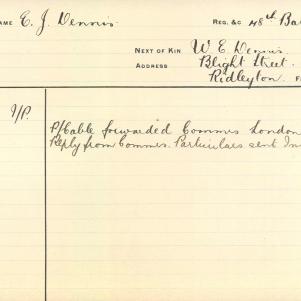 NAME E. J. Dennis. REG. &C 48th Ba
NEXT OF KIN W E Dennis.
ADDRESS Blight Street.
Ridleyton. F
I/P.
P/Cable forwarded Commes London
Reply from Commes. Particulars sent In